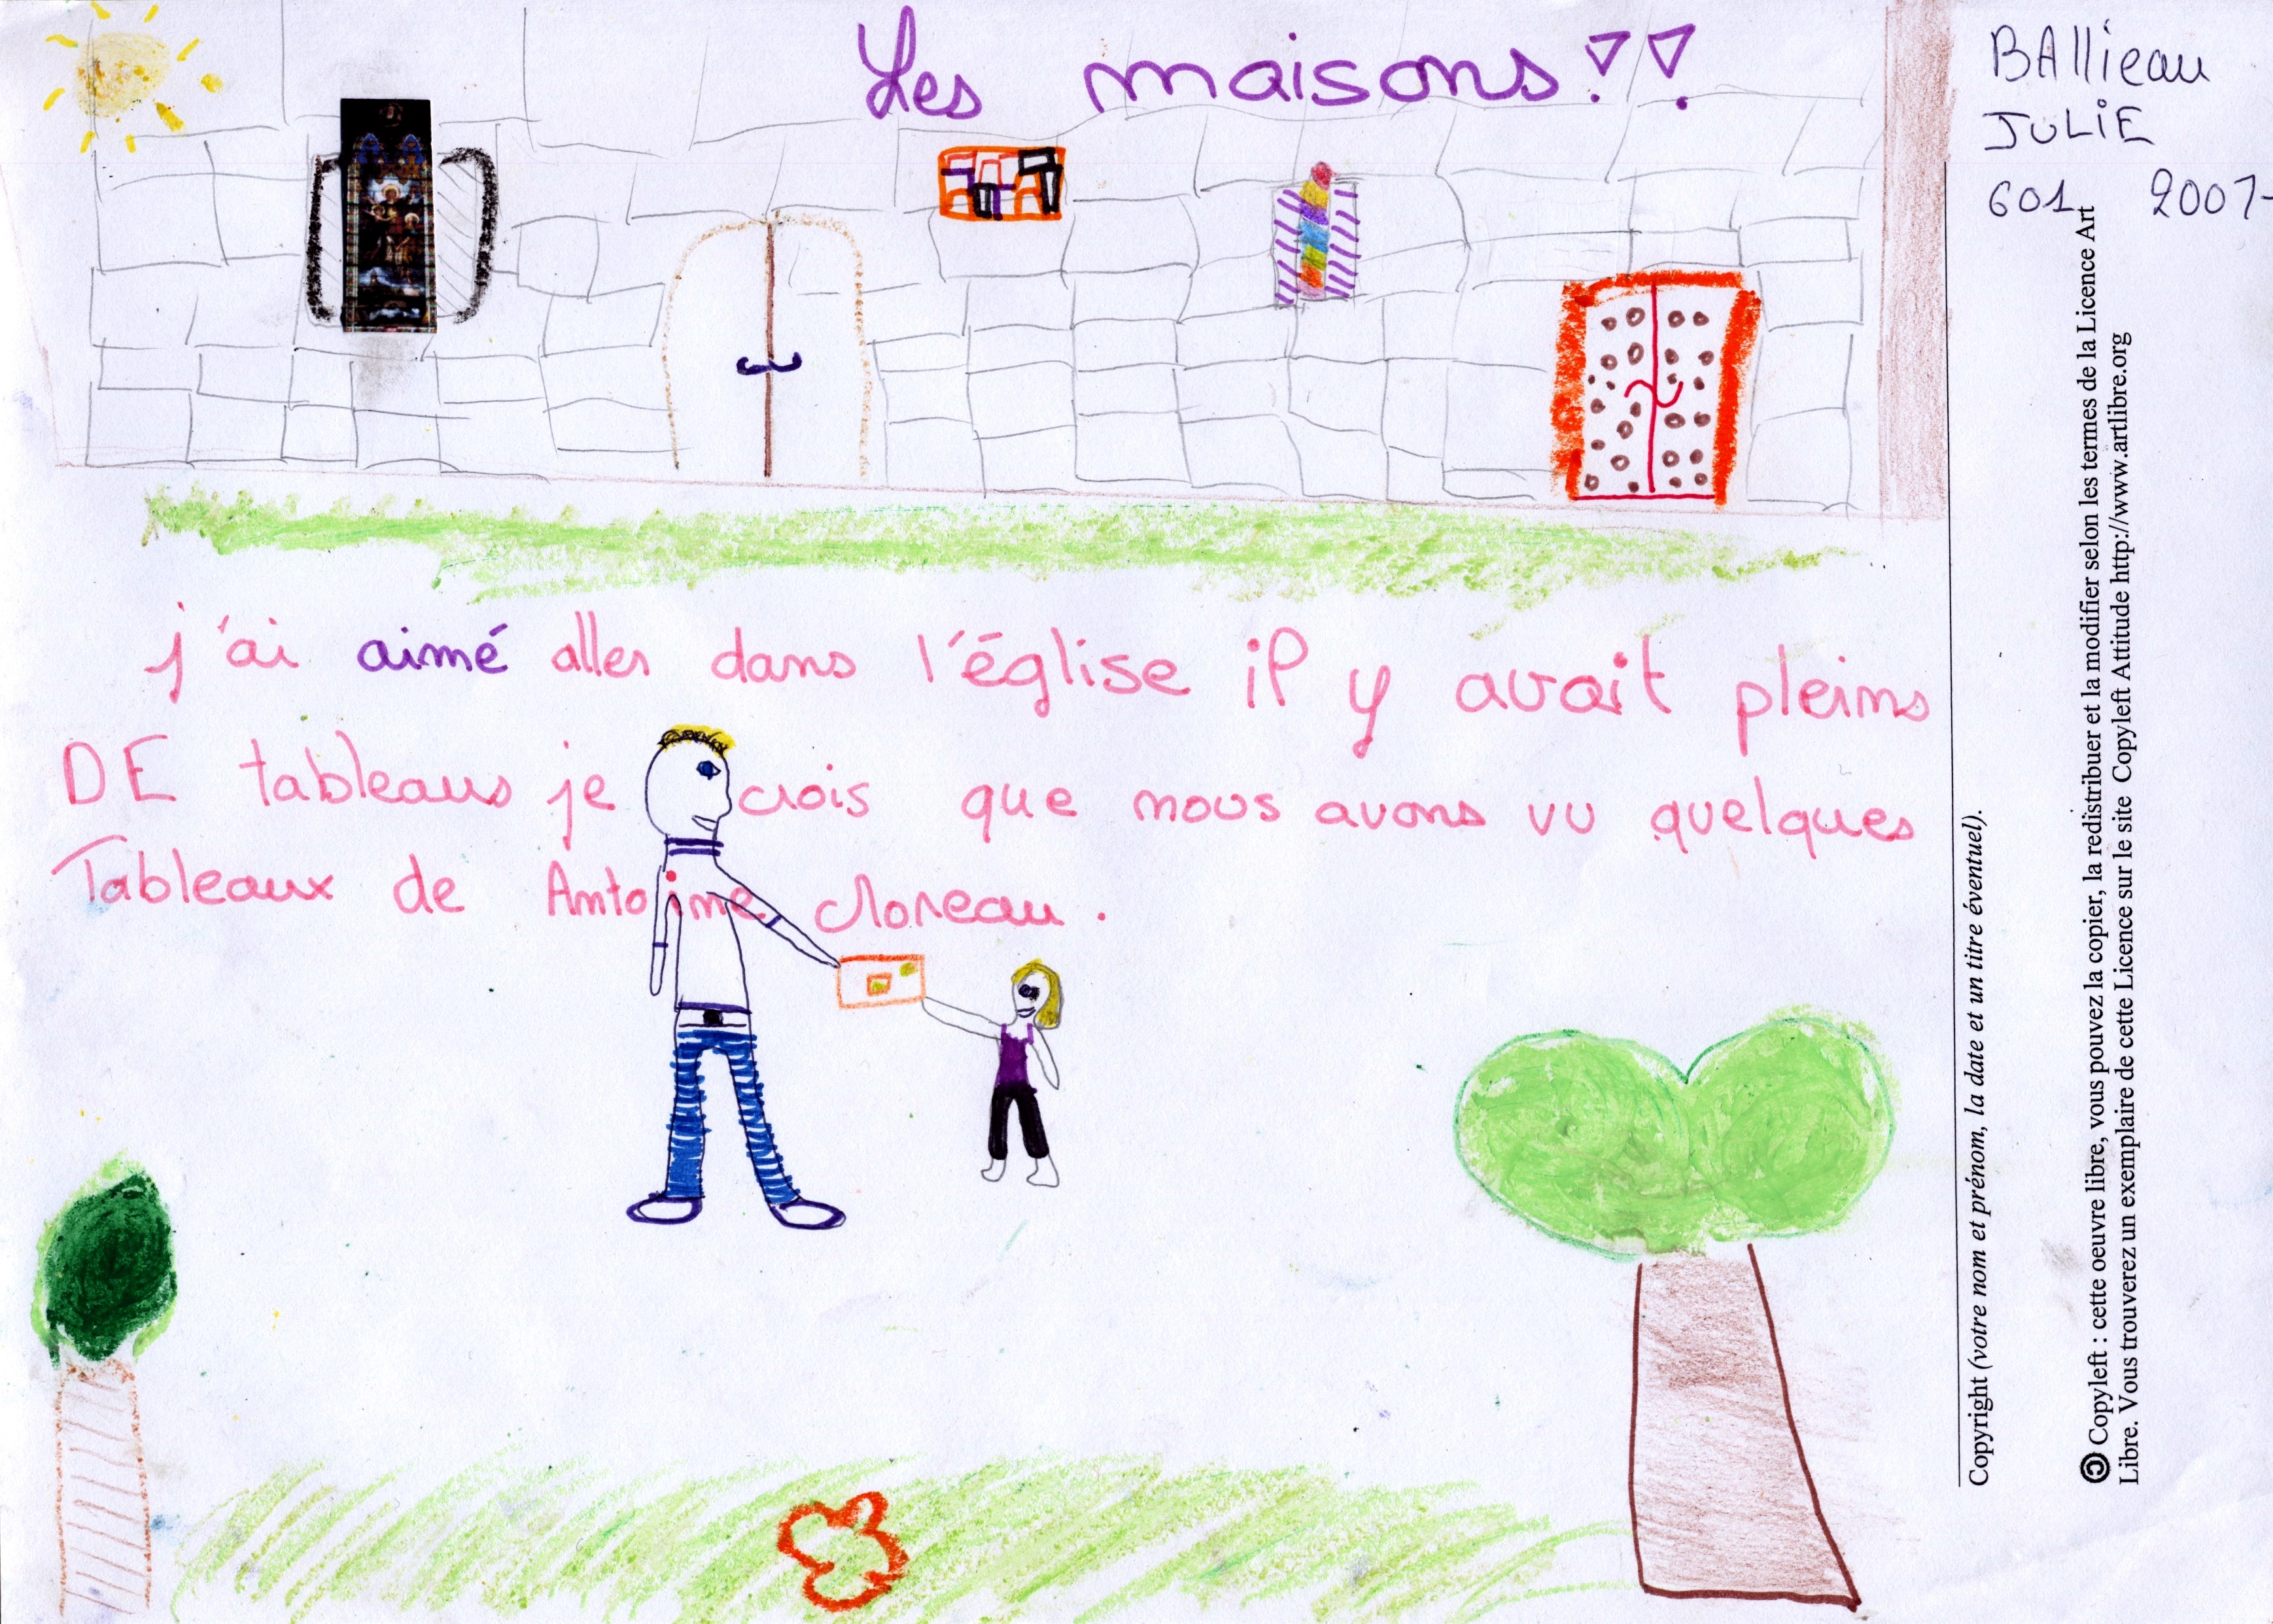 Les maisons!!
BAllieau
JULiE
601 2007-
j'ai aimé aller dans l'église il y avait pleins
DE tableaus je crois que nous avons vu quelques
Tableaux de Antoine
Copyright (votre nom et prénom, la date et un titre éventuel).
Copyleft : cette oeuvre libre, vous pouvez la copier, la redistribuer et la modifier selon les termes de la Licence Art
Libre. Vous trouverez un exemplaire de cette Licence sur le site Copyleft Attitude http://www.artlibre.org